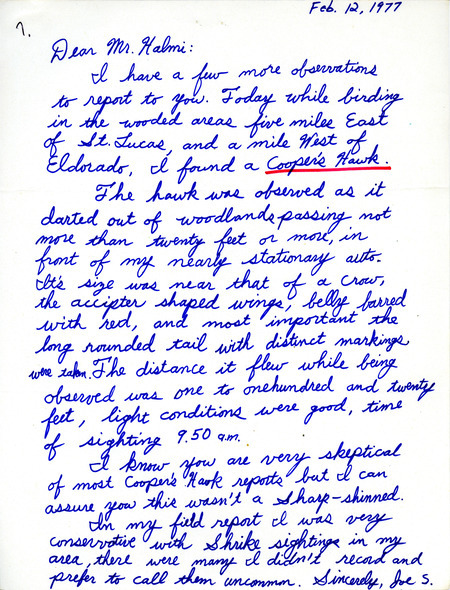 Feb. 12, 1977
7.
Dear Mr. Halmi:
I have a few more observations
to report to you. Today while birding
in the wooded areas five miles East
of St. Lucas, and a mile West of
Eldorado, I found a Cooper's Hawk.
The hawk was observed as it
darted out of woodlands passing not
more than twenty feet or more, in
front of my nearly stationary auto.
It's size was near that of a crow,
the accipter shaped wings, belly barred
with red, and most important the
long rounded tail with distinct markings
were taken. The distance it flew while being
observed was one to onehundred and twenty
feet, light conditions were good, time
of sighting 9:50 a.m.
I know you are very skeptical
of most Cooper's Hawk reports but I can
assure you this wasn't a Sharp-shinned.
In my field report I was very
conservative with Shrike sightings in my
area, there were many I didn't record and
prefer to call them uncommon. Sincerely, Joe S.